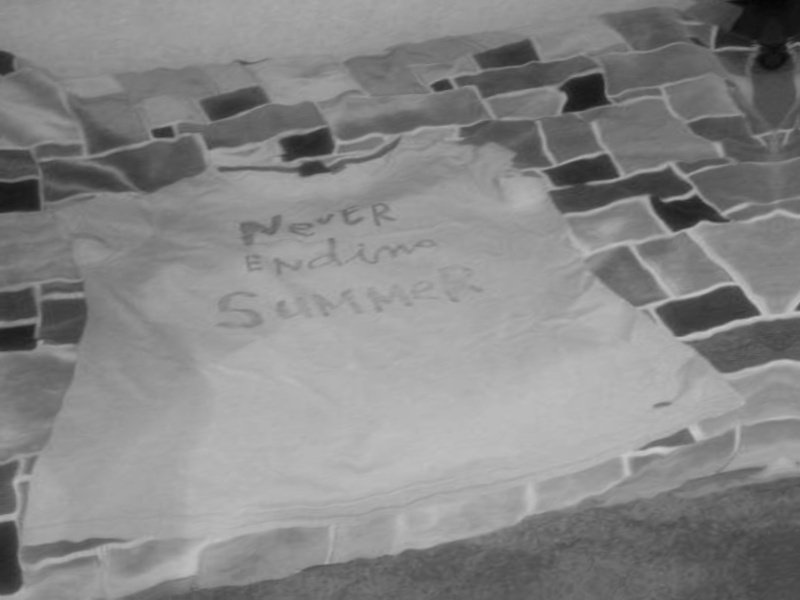 NeVER
ENdinG
SuMMeR